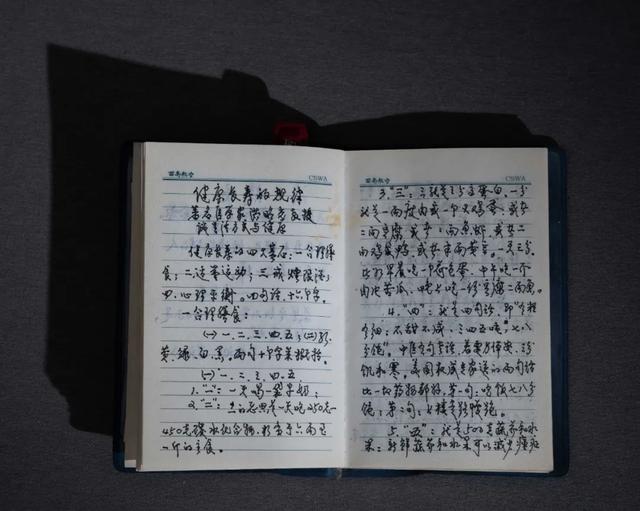 西南航空 CSWA
健康长寿的规律
著名医学家洪昭光教授
谈生活方式与健康
健康长寿的四大基石：一合理膳
食；二适善运动；三戒烟限酒；
四、心理平衡。四句话，十六个字。
一合理膳食：
㈠一、二、三、四、五；㈡红、
黄、绿、白、黑。两句十个字来概括。
㈠一、二、三、四、五
1."一"：一天喝一袋牛奶；
2."二"：的意思是一天吃250克—
450克碳水化合物，相当于六两至
一斤的主食。
西南航空 CSWA
3."三"：三就是三分高蛋白，一分
就是一两瘦肉或一个大鸡蛋、或者
二两豆腐 或者二两鱼虾，或者二
两鸡或鸭，或者半两黄豆。一天三分
早晨吃一个荷包蛋，中午吃一个
肉片苦瓜，晚上吃一分豆腐二两鱼。
4、"四"：就是四句话，即"有粗
有细；不甜不咸；三四五顿；七八
分饱"。中医有句古话，若要身体安，三分
饥和寒。美国权威专家说的两句话
比一切药物都好，第一句：吃饭七八分
饱；第二句：上楼 跑。
5."五"：就是500克蔬菜和水
果；新鲜蔬菜和水果可以减少癌症